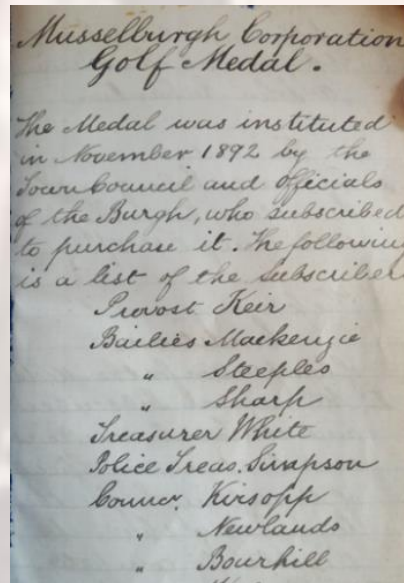 Musselburgh Corporation
Golf Medal.
The Medal was instituted
in November 1892 by the
Town Council and officials
of the Burgh, who subscribed
to purchase it. The following
is a list of the subscriber
Provost Keir
Bailies Mackenzie
" Steeples
" Sharp
Treasurer White
Police Treas. Simpson
Councr. Kirsopp
" Newlands
" Bourhill